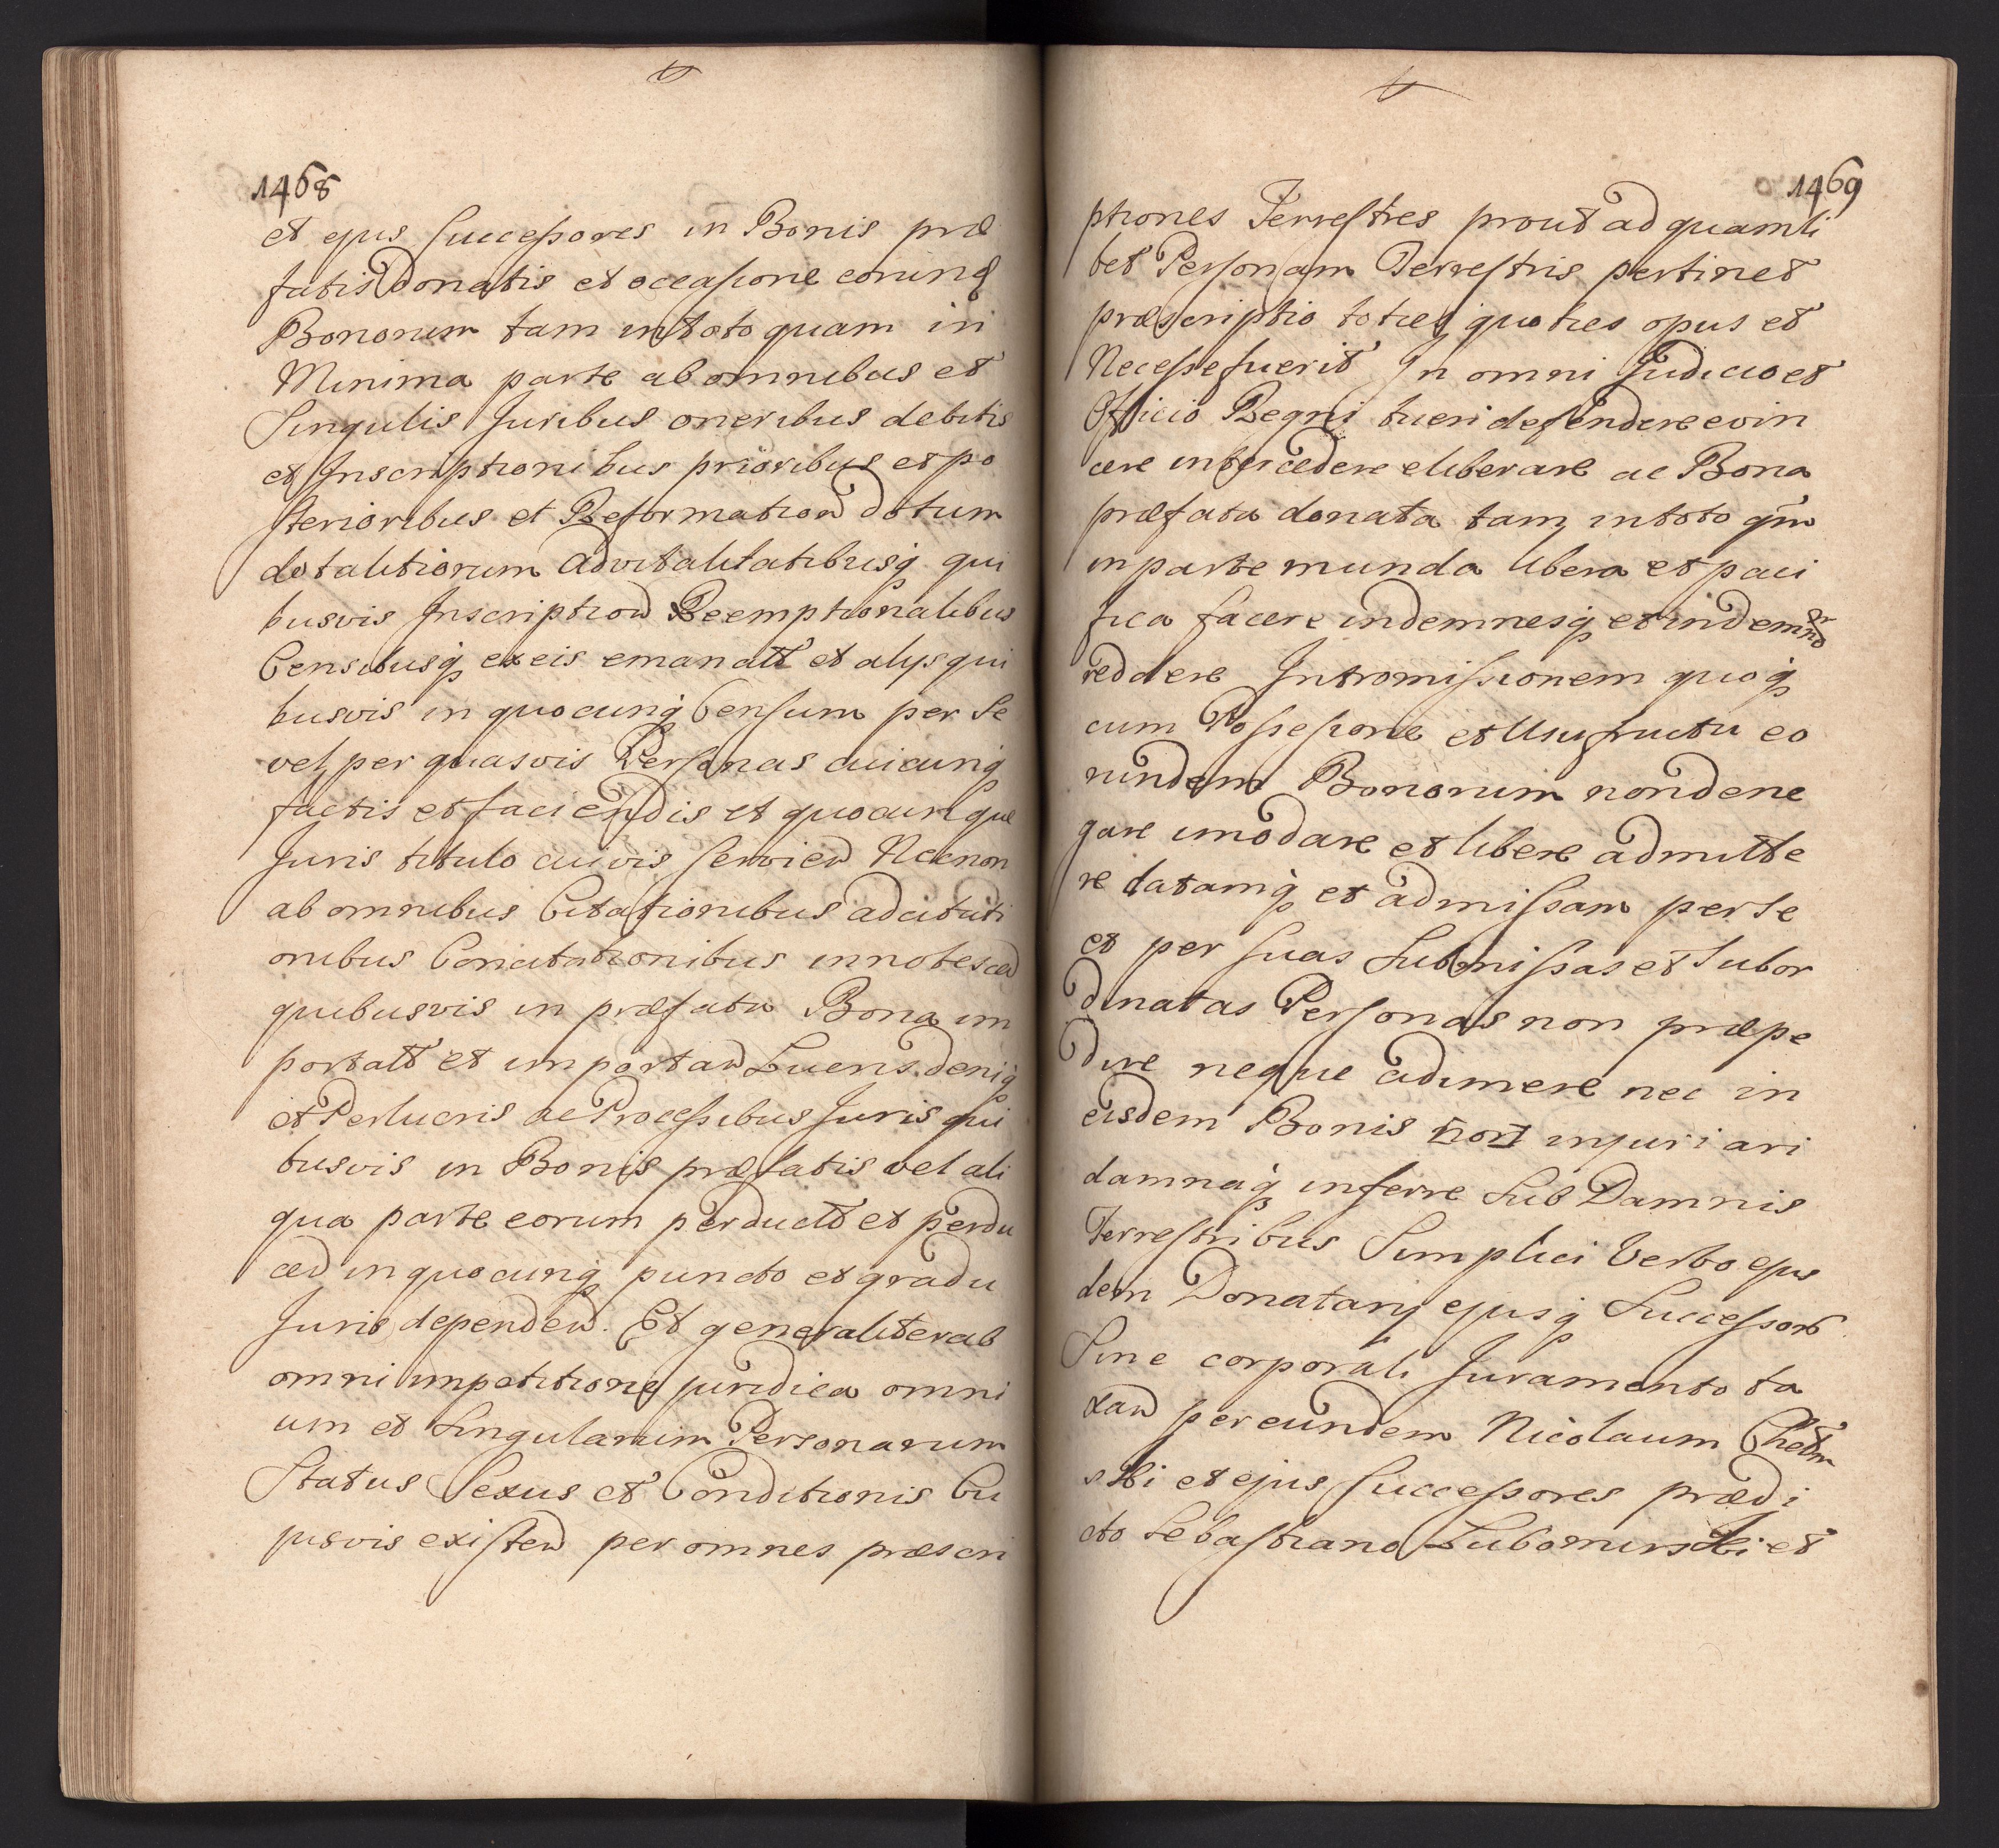 1468
et ejus successores in Bonis præ
fatis donatis et occasione eorund
Bonorum tam in toto quam in
Minima parte ab omnibus et
Singulis Juribus oneribus debitis
et Inscriptionibus prioribus et po
sterioribus et Reformation dotum
dotalitiorum advitalitatibusq qui
busvis Inscription Reemptionalibus
Censibusq ex eis emanatt et alijs qui
busvis in quocunq Censum per se
vel per quasvis Personas cuicunq
factis et faciendis et quocunque
Juris titulo cuivis servien Necnon
ab omnibus Citationibus adcitati
onibus Concitationibus innotescen
quibusvis in præfata Bona im
portatt et importan Lucris deniq
et Perlucris ac Processibus Juris qui
busvis in Bonis præfatis vel ali
qua parte eorum perductt et perdu
cen in quocunq puncto et gradu
Juris dependen. Et generaliter ab
omni impetitione juridica omni
um et Singularum Personarum
Status Sexus et Conditionis Cu
jusvis existen per omnes præscri
1469
ptiones Terrestres prout ad quamli
bet Personam Terrestris pertinet
præscriptio toties quoties opus et
Necesse fuerit In omni Judicio et
Officio Regni tueri defendere evin
cere intercedere eliberare ac Bona
præfata donata tam in toto qm
in parte munda libera et paci
fica facere indemnesq et indemn
reddere Intromissionem quoq
cum Possessione et Usufructu eo
rundem Bonorum non dene
gare imo dare et libere admitte
re datamq et admissam per se
et per suas Submissas et Subor
dinatas Personas non præpe
dire neque adimere nec in
eisdem Bonis [non] injuriari
damnaq inferre Sub Damnis
Terrestribus Simplici Verbo ejus
dem Donatarij ejusq Successorb
Sine corporali Juramento ta
xan per eundem Nicolaum Chełm
ski et ejus Successores prædi
cto Sebastiano Lubomirski et